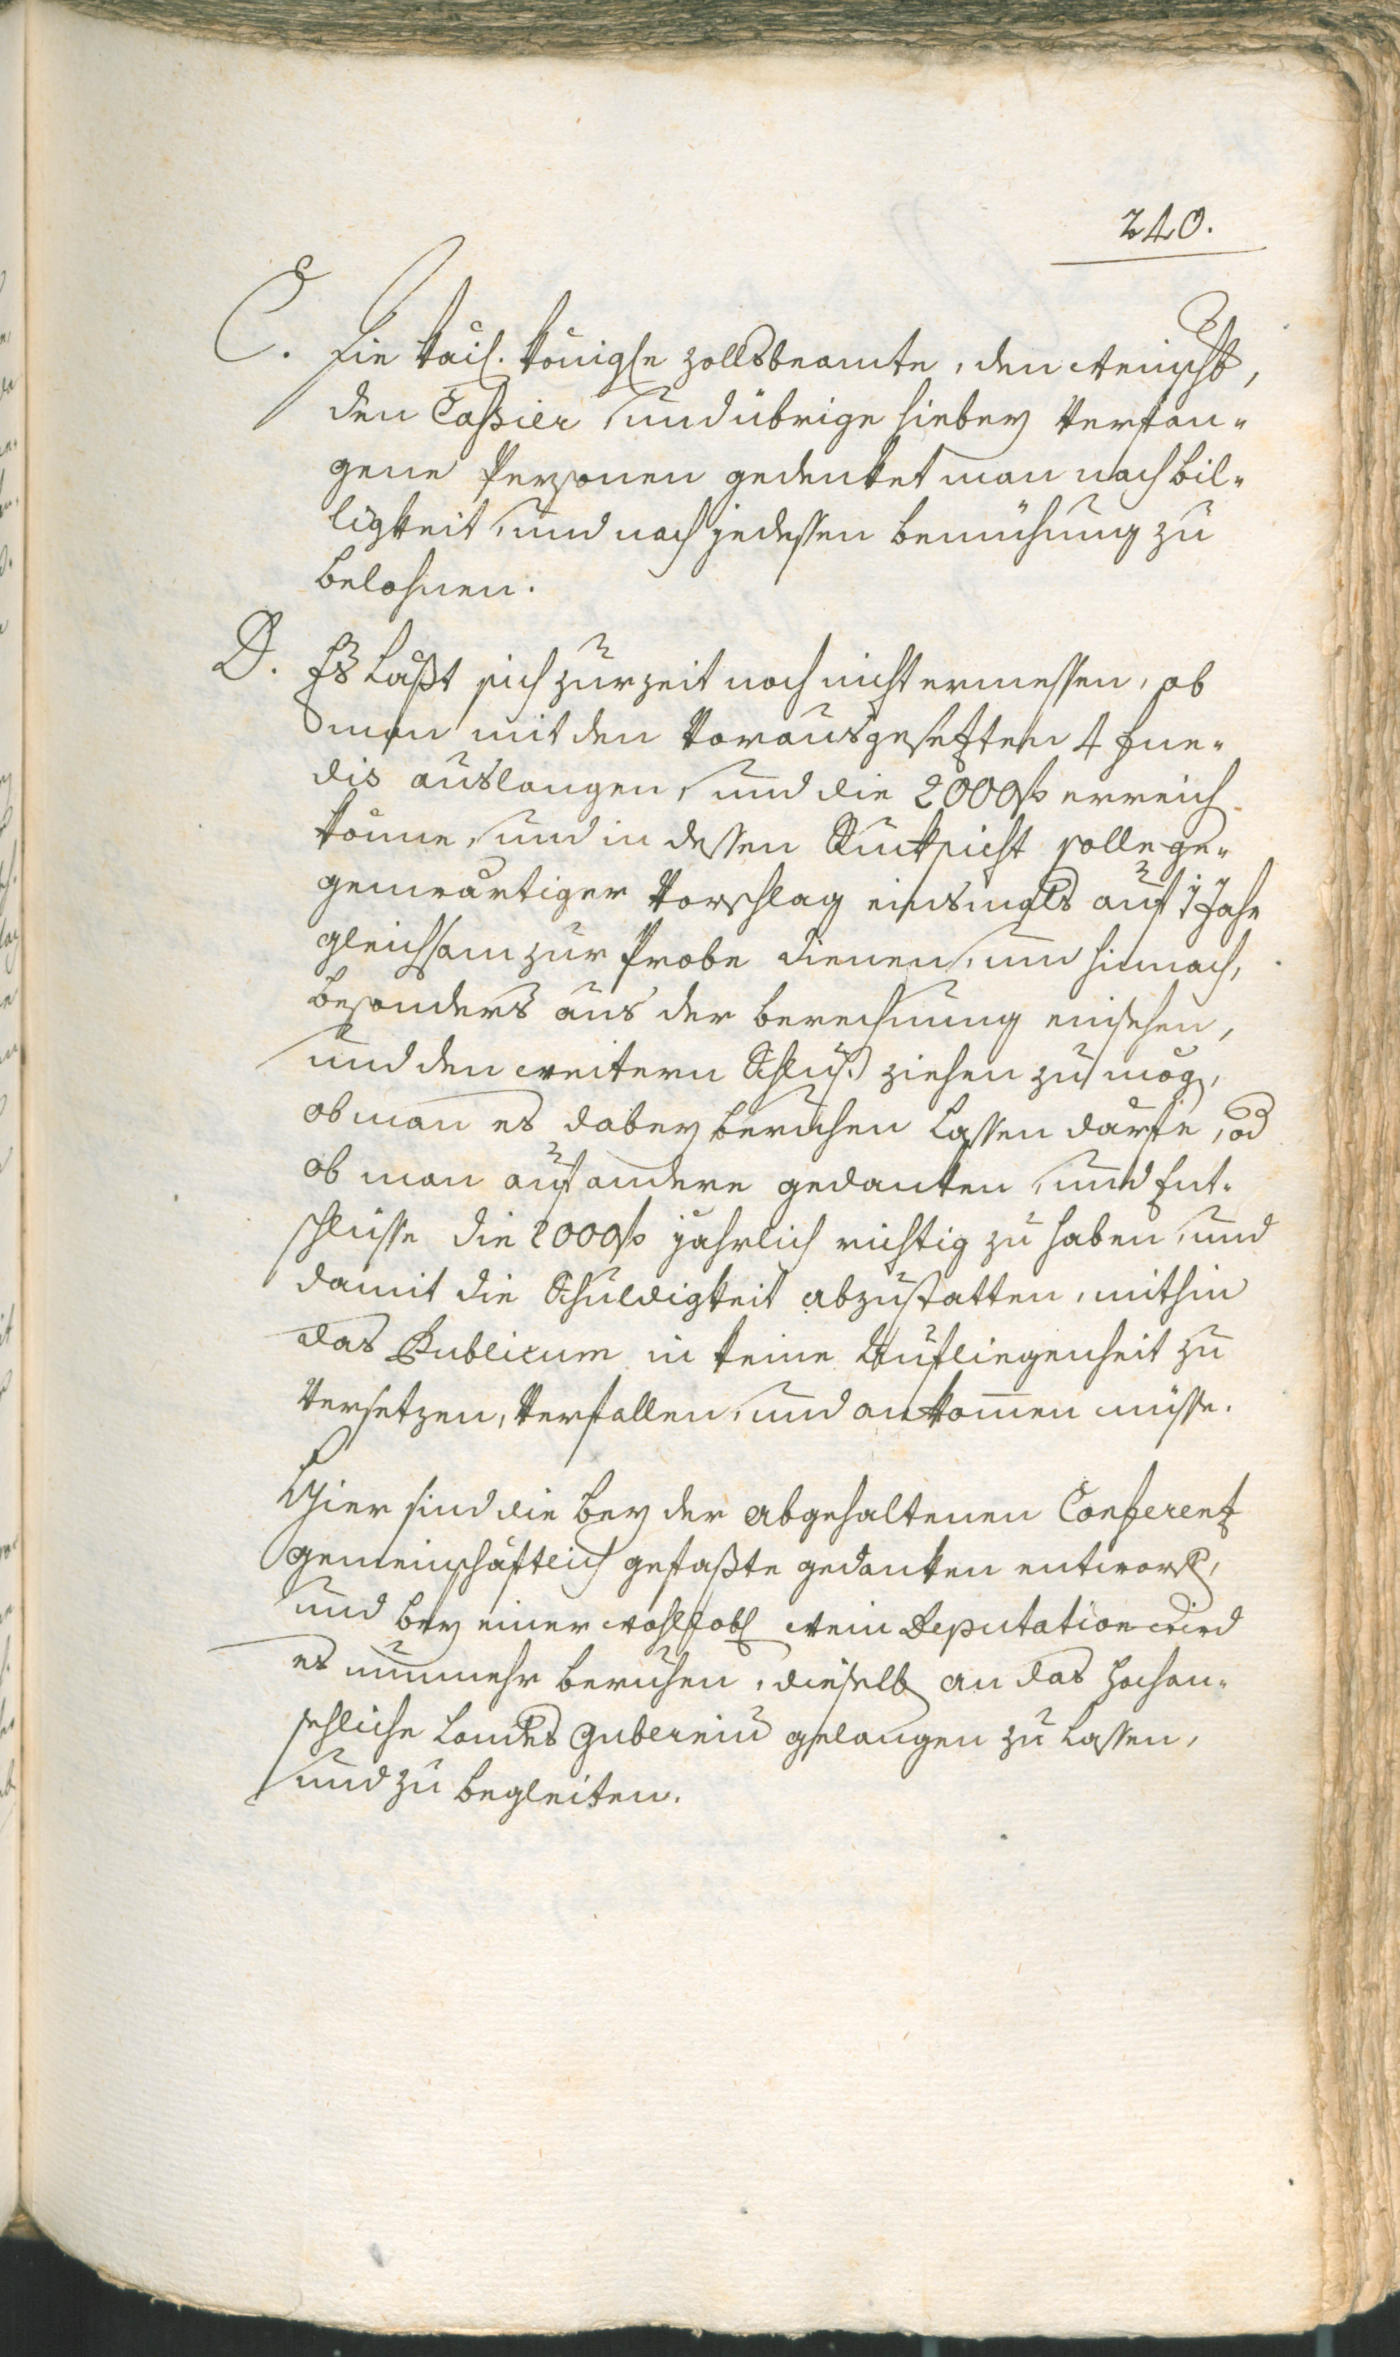 240.
C. Die Kais. Königle Zollsbeamte, den
den Cassier, und übrige hiebey Verfan-
gene Personen gedenket man nach bil-
ligkeit, und nach jedessen bemühung zu
belohnen.
D. Es laßt sich zur Zeit noch nicht ermessen, ob
man mit den Vorausgesezten 4 Fun-
dis auslangen, und die 2000 f erreich
könne, und in dessen Rücksicht solle ge-
genwärtiger Vorschlag einsmals auf 1 Jahr
gleichsam zur Probe dienen, um hinnach,
besonders aus der berechnung einsehen,
und den weitern Schluß ziehen zu mög,
ob man es dabey beruhen lassen darfe, od
ob man auf andere gedanken, und Ent-
schlüsse die 2000 f jahrlich richtig zu haben, und
damit die Schuldigkeit abzustatten, mithin
das Publicum in keine Aufliegenheit zu
Versetzen, Verfallen, und ankomen müsse.
Hier sind die bey der abgehaltenen Conferenz
gemeinschäftlich gefaßte gedanken entworf,
und bey einer wohllobl Wein Deputation wird
es nunmehr beruhen, dieselb an das Hochan-
sehliche Landes Guberniu gelangen zu lassen,
und zu begleiten.